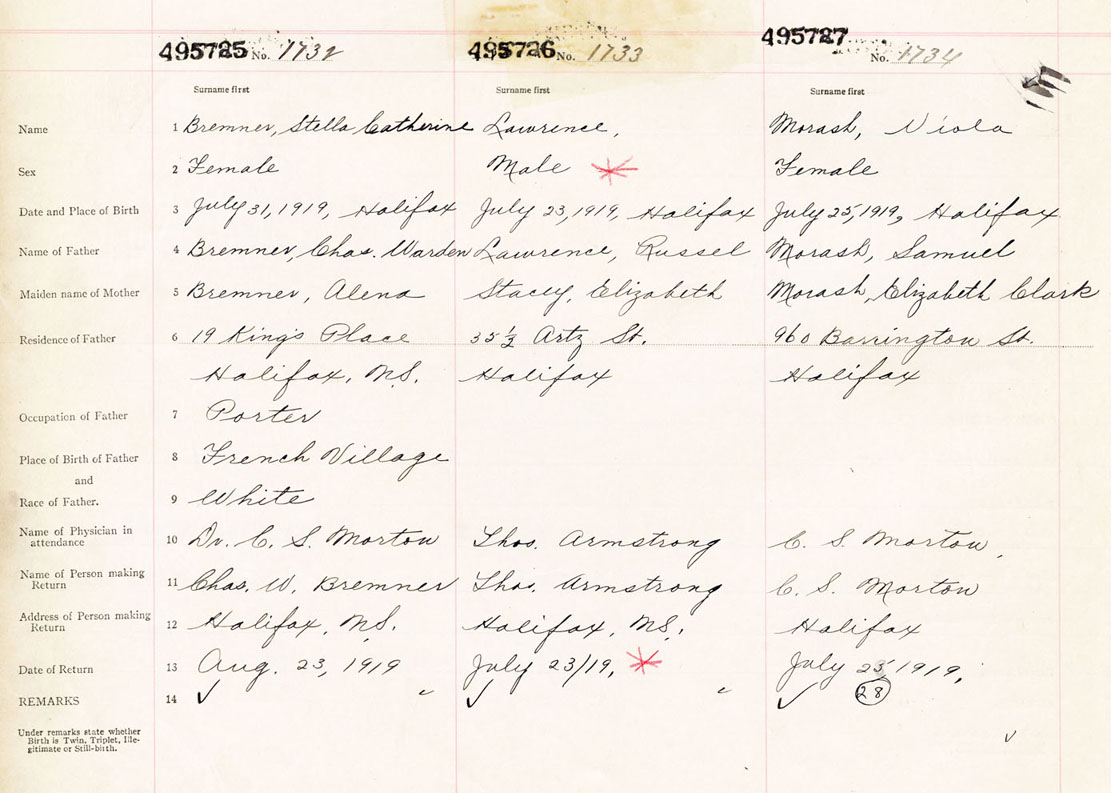 495725 No. 1732 495726 No. 1733 495727 No. 1734
Surname first Surname first Surname first
Name 1 Bremner, Stella Catherine Lawrence, Morash, Viola
Sex 2 Female Male Female
Date and Place of Birth 3 July 31, 1919, Halifax July 23, 1919, Halifax July 25, 1919, Halifax
Name of Father 4 Bremner, Chas. Warden Lawrence, Russel Morash, Samuel
Maiden name of Mother 5 Bremner, Alena Stacey, Elizabeth Morash, Elizabeth Clark
Residence of Father 6 19 King's Place 35 1/2 Artz St. 960 Barrington St.
Halifax, N.S. Halifax Halifax
Occupation of Father 7 Porter
Place of Birth of Father 8 French Village
and
Race of Father. 9 White
Name of Physician in
attendance 10 Dr. C. S. Morton Thos. Armstrong C. S. Morton,
Name of Person making
Return 11 Chas. W. Bremner Thos. Armstrong C. S. Morton
Address of Person making
Return 12 Halifax, N.S. Halifax, N.S. Halifax
Date of Return 13 Aug. 23, 1919 July 23/19, July 25, 1919,
REMARKS 14 ✓ " ✓ " ✓ 28
Under remarks state whether
Birth is Twin, Triplet, Ille-
gitimate or Still-birth. ✓